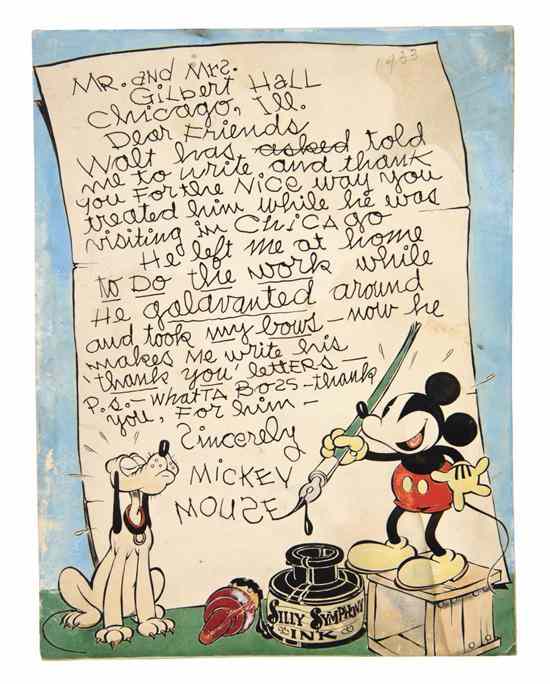 1933
MR. and Mrs.
Gilbert Hall
Chicago, Ill.
Dear Friends
Walt has asked told
me to write and thank
you For the Nice way you
treated him while he was
visiting in CHICAGO
He left me at home
to Do the work while
He galavanted around
and took my bows – now he
makes me write his
'thank you' letters –
P.S. – WHATTA BOZS – thank
you, For him –
Sincerely
MICKEY
MOUSE
SILLY SYMPHONY
INK